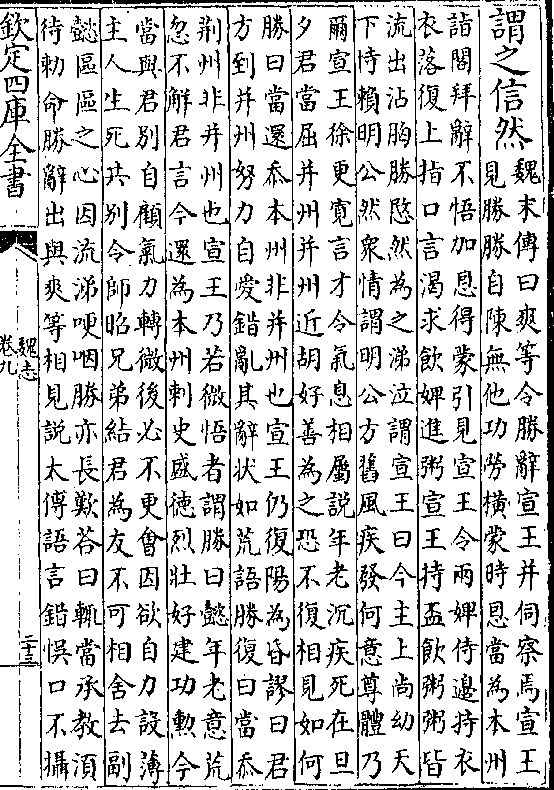 謂之信然
魏末傳曰爽等令勝辭宣王并伺察焉宣王
見勝勝自陳無他功勞橫蒙時恩當為本州
詣閤拜辭不悟加恩得蒙引見宣王令兩婢侍邊持衣
衣落復上指口言渴求飲婢進粥宣王持盃飲粥粥皆
流出沾胸勝愍然為之涕泣謂宣王曰今主上尚幼天
下恃賴明公然衆情謂明公方舊風疾發何意尊體乃
爾宣王徐更寛言才令氣息相屬說年老沉疾死在旦
夕君當屈并州并州近胡好善為之恐不復相見如何
勝曰當還忝本州非并州也宣王仍復陽為昏謬曰君
方到并州努力自愛錯亂其辭狀如荒語勝復曰當忝
荆州非并州也宣王乃若微悟者謂勝曰懿年老意荒
忽不解君言今還為本州刺史盛德烈壯好建功勳今
當與君别自顧氣力轉微後必不更會因欲自力設薄
主人生死共别令師昭兄弟結君為友不可相舍去副
懿區區之心因流涕哽咽勝亦長歎荅曰輒當承教須
待勅命勝辭出與爽等相見說太傅語言錯悞口不攝
欽定四庫全書
魏志
卷九
二十三